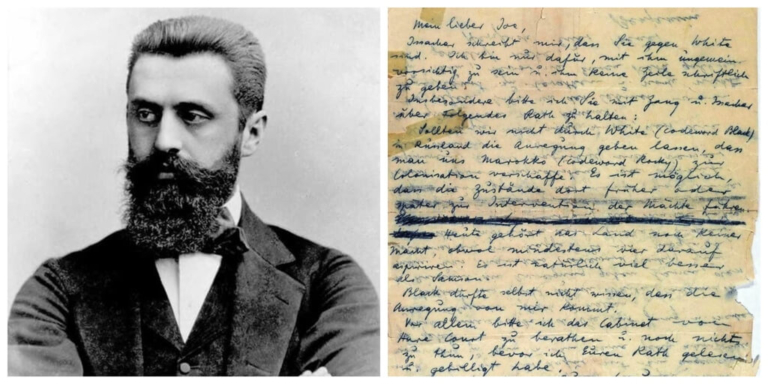 Mein lieber Joe,
Issachar schreibt mir, dass Sie gegen White
sind. Ich bin nur dafür, mit ihm ungemein
vorsichtig zu sein u. ihm keine Zeile schriftlich
zu geben.
Insbesondere bitte ich Sie mit Zang u. Issachar
über folgendes Rath zu halten:
Sollten wir nicht durch White (Codeword Black)
in Ausland die Anregung geben lassen, dass
man uns Marokko (Codeword Rocky) zur
Colonisation verschaffe. Es ist möglich,
dass die Zustände dort früher oder
später zu Intervention der Mächte führen
Heute gehört das Land noch keiner
Macht, obwol mindestens vier darauf
aspiriren. Es ist natürlich viel besser
als Samson.
Black dürfte selbst nicht wissen, dass die
Anregung von mir kommt.
Vor allem bitte ich das Cabinet von
Hare Court zu berathen u. noch nichts
zu thun, bevor ich Euren Rath gelesen
u. gebilligt habe.